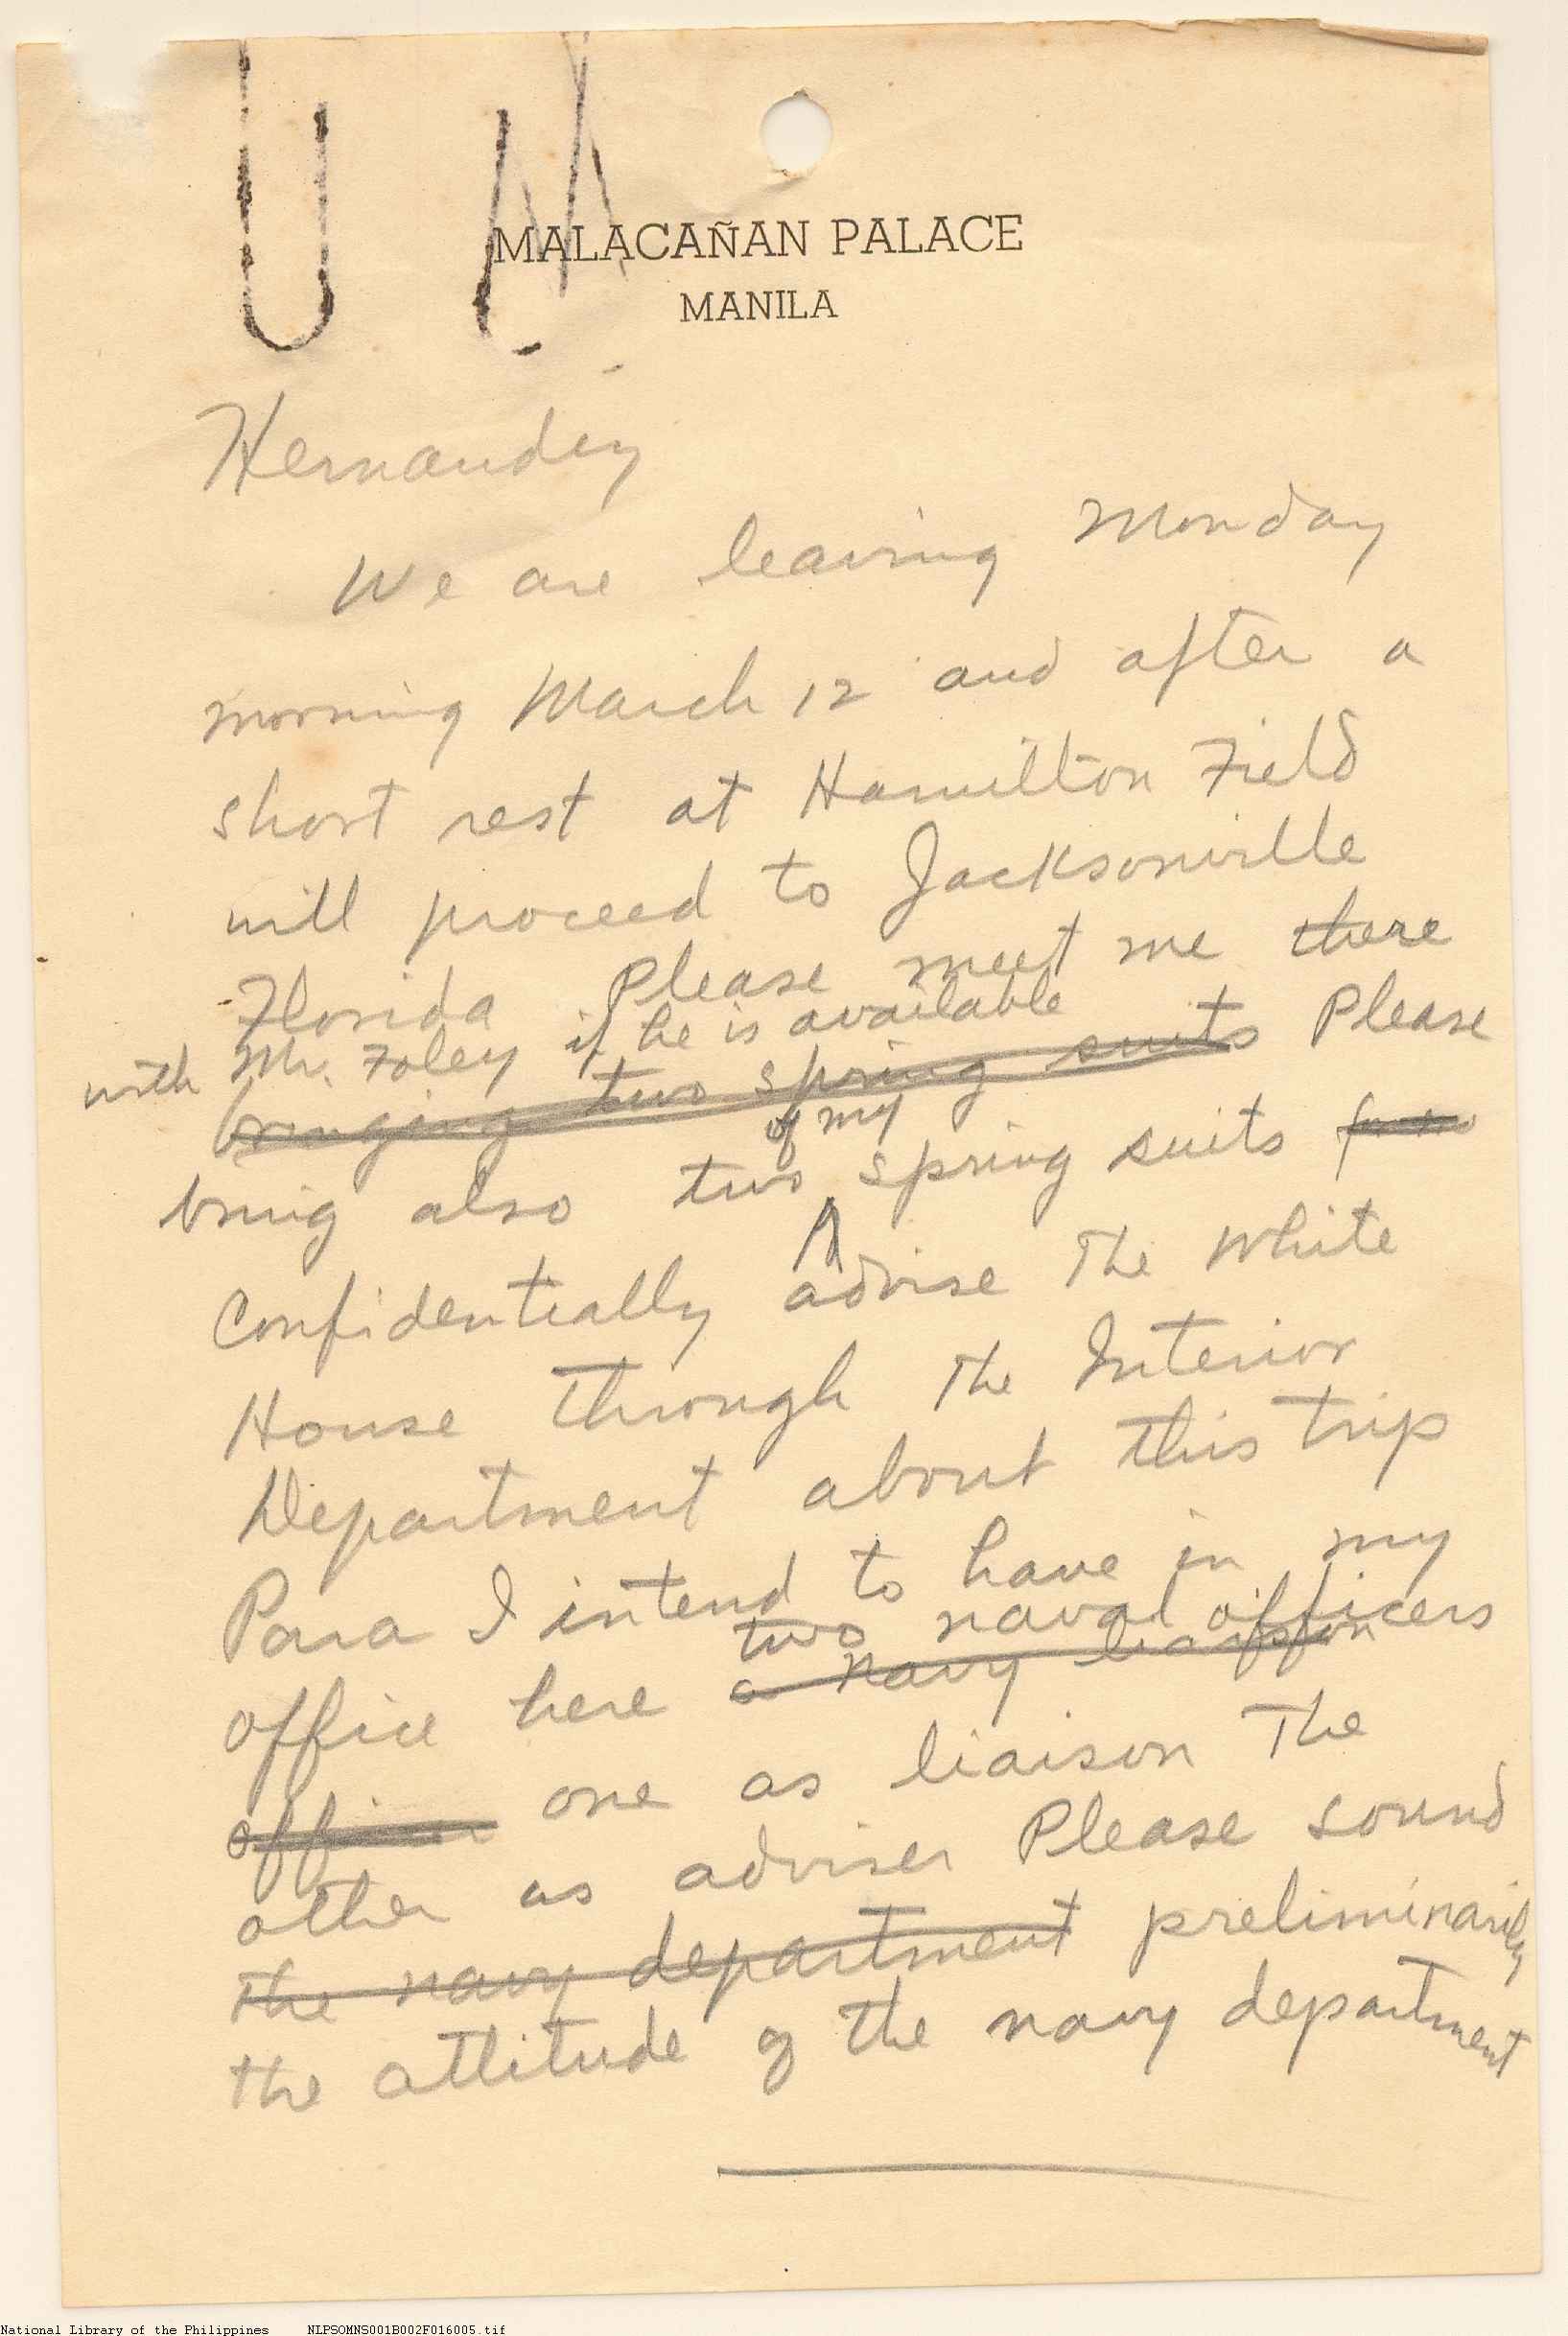 MALACAÑAN PALACE
MANILA
Hernandez
We are leaving Monday
morning March 12 and after a
short rest at Hamilton Field
will proceed to Jacksonville
Florida Please meet me there
with Mr. Foley if he is available
bringing two spring suits Please
of my
bring also two spring suits
Confidentially advise The White
House through The Interior
Department about this trip
Para I intend to have in my
two naval officers
office here a navy liaison
officer one as liaison The
other as adviser Please sound
the navy department preliminarily
the attitude of the navy department
National Library of the Philippines NLPSOMNS001B002F016005.tif